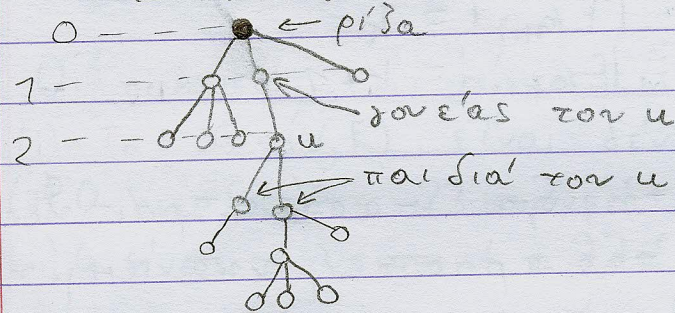 0 ρίζα
1
γονείας του u
2 u
παιδιά του u